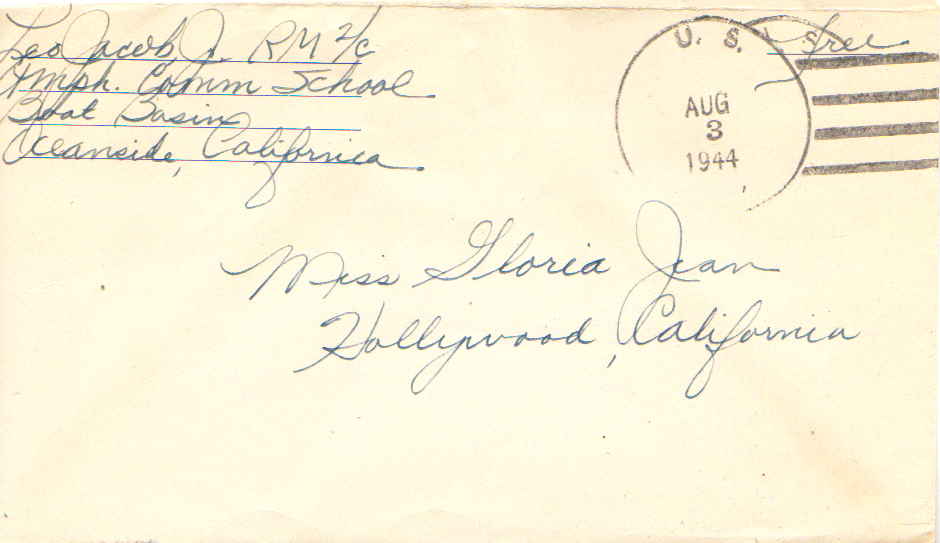 Leo Jacob, Jr. RM 2/c
Amph. Comm School
Boat Basin
Oceanside, California.
U. S.
Free
AUG
3
1944
Miss Gloria Jean
Hollywood, California